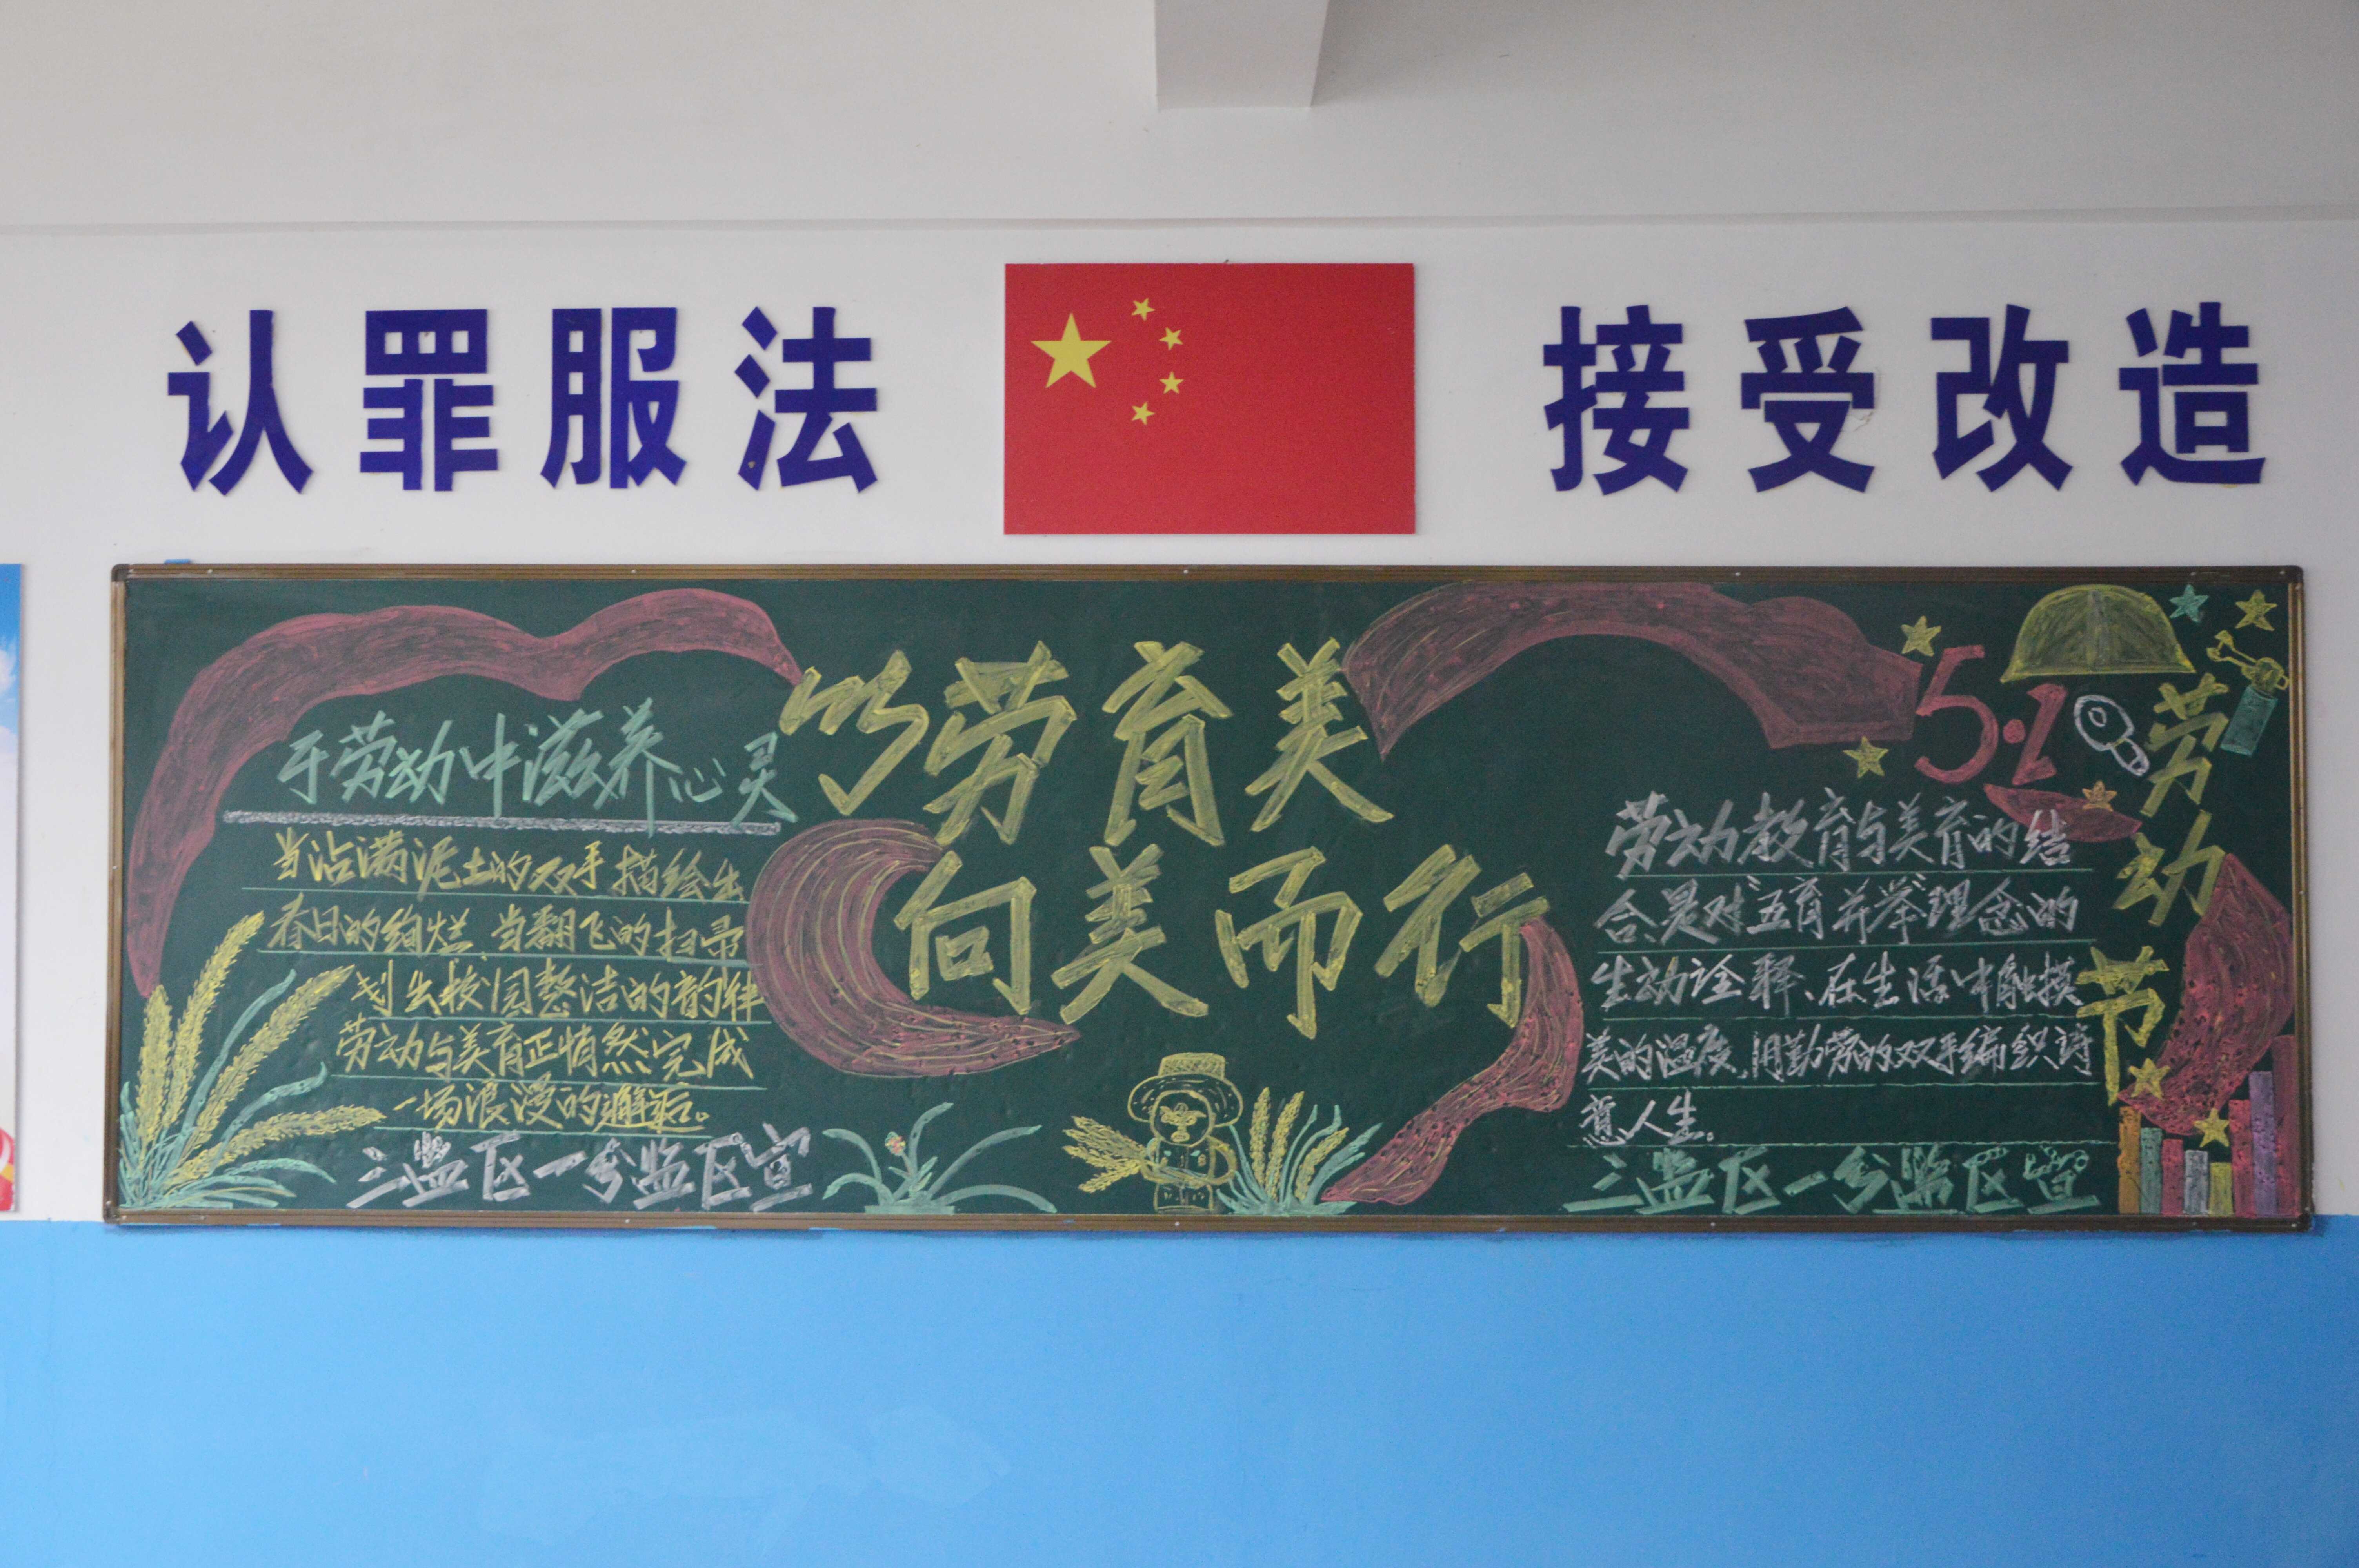 认罪服法
接受改造
以劳育美
向美而行
于劳动中滋养心灵
当沾满泥土的双手描绘出
春日的绚烂、当翻飞的扫帚
划出校园整洁的韵律
劳动与美育正悄然完成
一场浪漫的邂逅。
三监区一分监区宣
5·1
劳动节
劳动教育与美育的结
合,是对五育并举理念的
生动诠释、在生活中触摸
美的温度,用勤劳的双手编织诗
意人生。
三监区一分监区宣